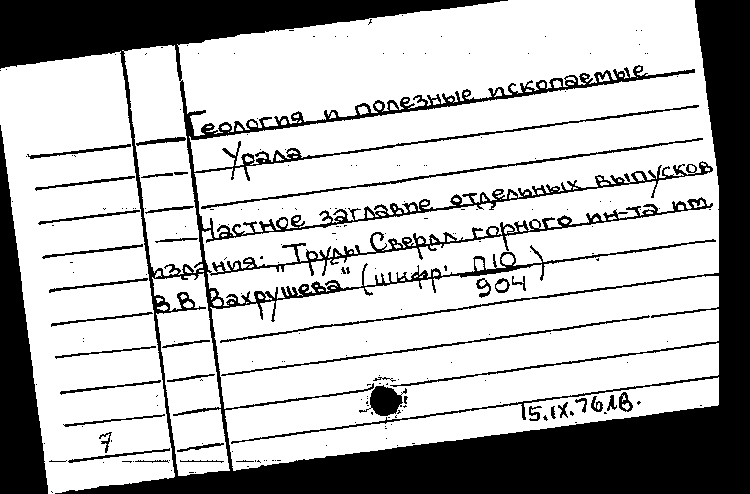 Геология и полезные ископаемые
Урала
Частное заглавие отдельных выпусков
издания: „Труды Свердл. горного ин-та им.
В.В. Вахрушева" (шифр: П10/904)
15.IX.76.
7